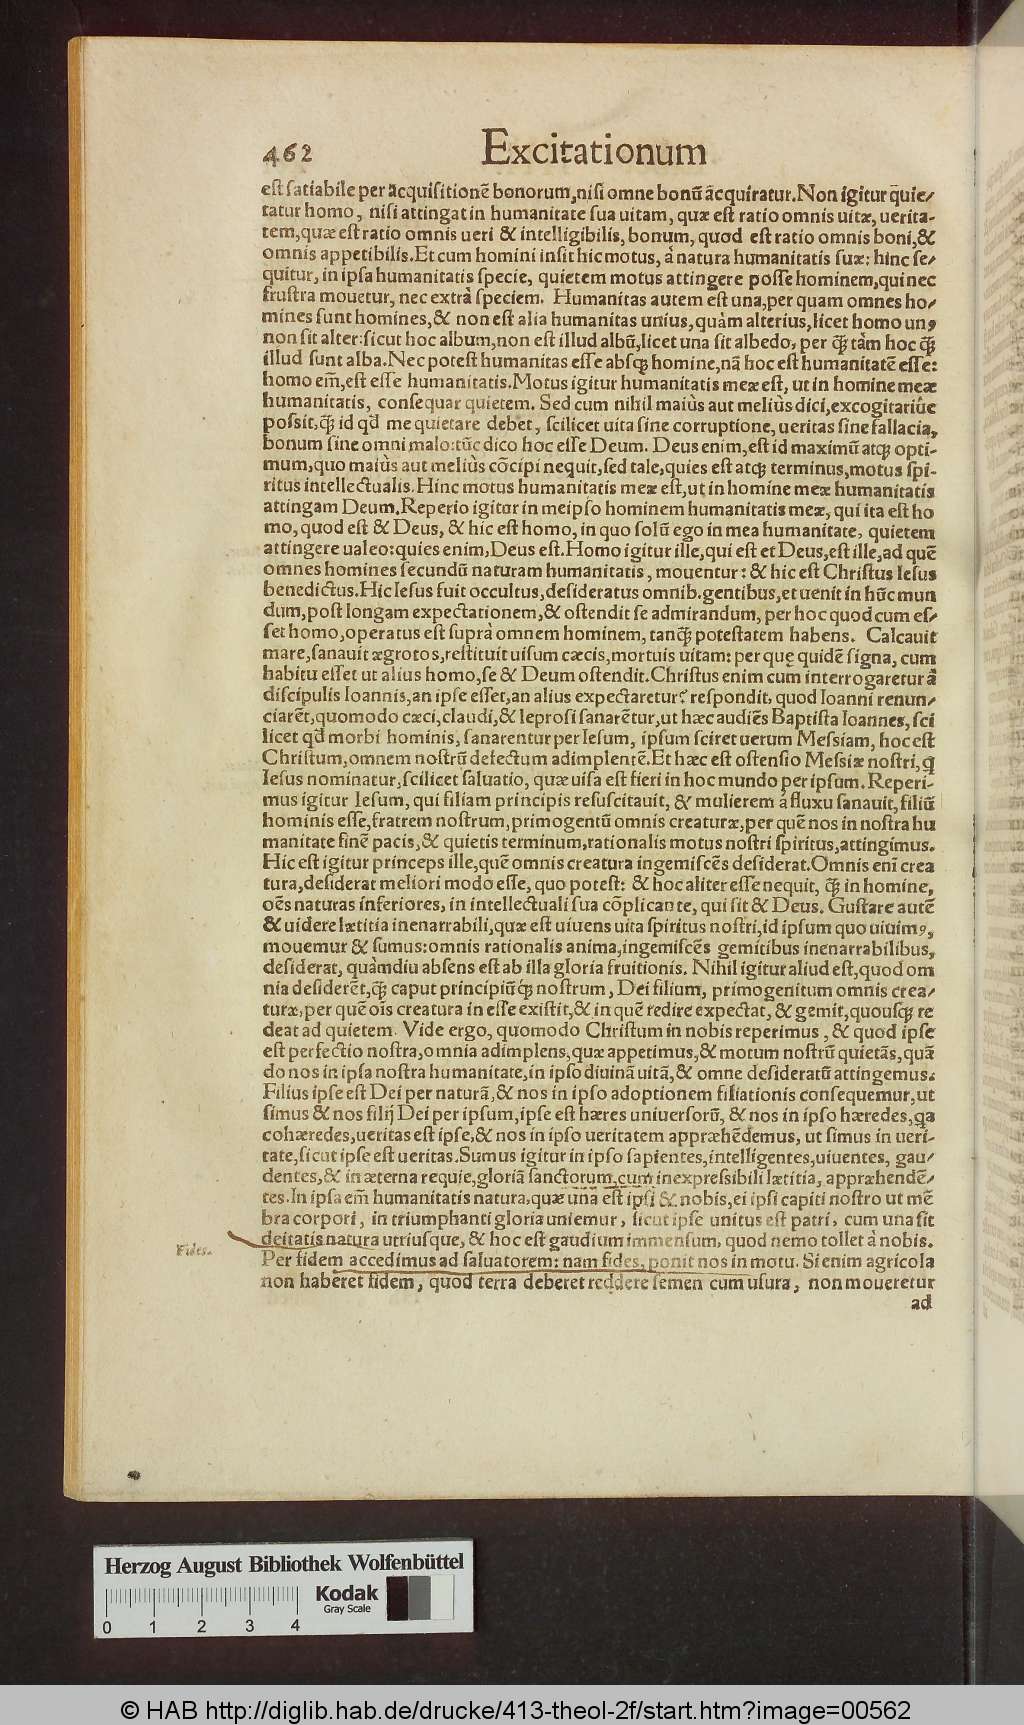 462 Excitationum
est satiabile per acquisitionẽ bonorum, nisi omne bonũ ãcquiratur. Non igitur q̃uie/
tatur homo, nisi attingat in humanitate sua uitam, quæ est ratio omnis uitæ, uerita-
tem, quæ est ratio omnis ueri & intelligibilis, bonum, quod est ratio omnis boni, &
omnis appetibilis. Et cum homini insit hic motus, à natura humanitatis suæ: hinc se/
quitur, in ipsa humanitatis specie, quietem motus attingere posse hominem, qui nec
frustra mouetur, nec extrà speciem. Humanitas autem est una, per quam omnes ho/
mines sunt homines, & non est alia humanitas unius, quàm alterius, licet homo unꝰ
non sit alter: sicut hoc album, non est illud albũ, licet una sit albedo, per q̃ꝫ tàm hoc q̃ꝫ
illud sunt alba. Nec potest humanitas esse absqꝫ homine, nã hoc est humanitatẽ esse:
homo em̃, est esse humanitatis. Motus igitur humanitatis meæ est, ut in homine meæ
humanitatis, consequar quietem. Sed cum nihil maiùs aut meliùs dici, excogitariúe
possit, q̃ꝫ id qd̃ me quietare debet, scilicet uita sine corruptione, ueritas sine fallacia,
bonum sine omni malo: tũc dico hoc esse Deum. Deus enim, est id maximũ atqꝫ opti-
mum, quo maiùs aut meliùs cõcipi nequit, sed tale, quies est atqꝫ terminus, motus spi-
ritus intellectualis. Hinc motus humanitatis meæ est, ut in homine meæ humanitatis
attingam Deum. Reperio igitur in meipso hominem humanitatis meæ, qui ita est ho
mo, quod est & Deus, & hic est homo, in quo solũ ego in mea humanitate, quietem
attingere ualeo: quies enim, Deus est. Homo igitur ille, qui est et Deus, est ille, ad quẽ
omnes homines secundũ naturam humanitatis, mouentur: & hic est Christus Iesus
benedictus. Hic Iesus fuit occultus, desideratus omnib. gentibus, et uenit in hũc mun
dum, post longam expectationem, & ostendit se admirandum, per hoc quod cum es/
set homo, operatus est suprà omnem hominem, tanq̃ꝫ potestatem habens. Calcauit
mare, sanauit ægrotos, restituit uisum cæcis, mortuis uitam: per quę quidẽ signa, cum
habitu esset ut alius homo, se & Deum ostendit. Christus enim cum interrogaretur à
discipulis Ioannis, an ipse esset, an alius expectaretur? respondit, quod Ioanni renun/
ciarẽt, quomodo cæci, claudi, & leprosi sanarẽtur, ut hæc audiẽs Baptista Ioannes, sci
licet qd̃ morbi hominis, sanarentur per Iesum, ipsum sciret uerum Messiam, hoc est
Christum, omnem nostrũ defectum adimplentẽ. Et hæc est ostensio Messiæ nostri, q̃
Iesus nominatur, scilicet saluatio, quæ uisa est fieri in hoc mundo per ipsum. Reperi-
mus igitur Iesum, qui filiam principis resuscitauit, & mulierem à fluxu sanauit, filiũ
hominis esse, fratrem nostrum, primogentũ omnis creaturæ, per quẽ nos in nostra hu
manitate finẽ pacis, & quietis terminum, rationalis motus nostri spiritus, attingimus.
Hic est igitur princeps ille, quẽ omnis creatura ingemiscẽs desiderat. Omnis eni crea
tura, desiderat meliori modo esse, quo potest: & hoc aliter esse nequit, q̃ꝫ in homine,
oẽs naturas inferiores, in intellectuali sua cõplicante, qui sit & Deus. Gustare autẽ
& uidere lætitia inenarrabili, quæ est uiuens uita spiritus nostri, id ipsum quo uiuimꝰ,
mouemur & sumus: omnis rationalis anima, ingemiscẽs gemitibus inenarrabilibus,
desiderat, quàmdiu absens est ab illa gloria fruitionis. Nihil igitur aliud est, quod om
nia desiderẽt, q̃ꝫ caput principiũq́ꝫ nostrum, Dei filium, primogenitum omnis crea/
turæ, per quẽ oĩs creatura in esse existit, & in quẽ redire expectat, & gemit, quousqꝫ re
deat ad quietem. Vide ergo, quomodo Christum in nobis reperimus, & quod ipse
est perfectio nostra, omnia adimplens, quæ appetimus, & motum nostrũ quietãs, quã
do nos in ipsa nostra humanitate, in ipso diuinã uitã, & omne desideratũ attingemus.
Filius ipse est Dei per naturã, & nos in ipso adoptionem filiationis consequemur, ut
simus & nos filij Dei per ipsum, ipse est hæres uniuersorũ, & nos in ipso hæredes, qa
cohæredes, ueritas est ipse, & nos in ipso ueritatem appræhẽdemus, ut simus in ueri-
tate, sicut ipse est ueritas. Sumus igitur in ipso sapientes, intelligentes, uiuentes, gau/
dentes, & in æterna requie, gloriã sanctorum, cum inexpressibili lætitia, appræhendẽ/
tes. In ipsa em̃ humanitatis natura, quæ unã est ipsi & nobis, ei ipsi capiti nostro ut mẽ
bra corpori, in triumphanti gloria uniemur, sicut ipse unitus est patri, cum una sit
deitatis natura utriusque, & hoc est gaudium immensum, quod nemo tollet à nobis.
Fides. Per fidem accedimus ad saluatorem: nam fides, ponit nos in motu. Si enim agricola
non haberet fidem, quod terra deberet reddere semen cum usura, non moueretur
ad
Herzog August Bibliothek Wolfenbüttel
Kodak
Gray Scale
0 1 2 3 4
© HAB http://diglib.hab.de/drucke/413-theol-2f/start.htm?image=00562